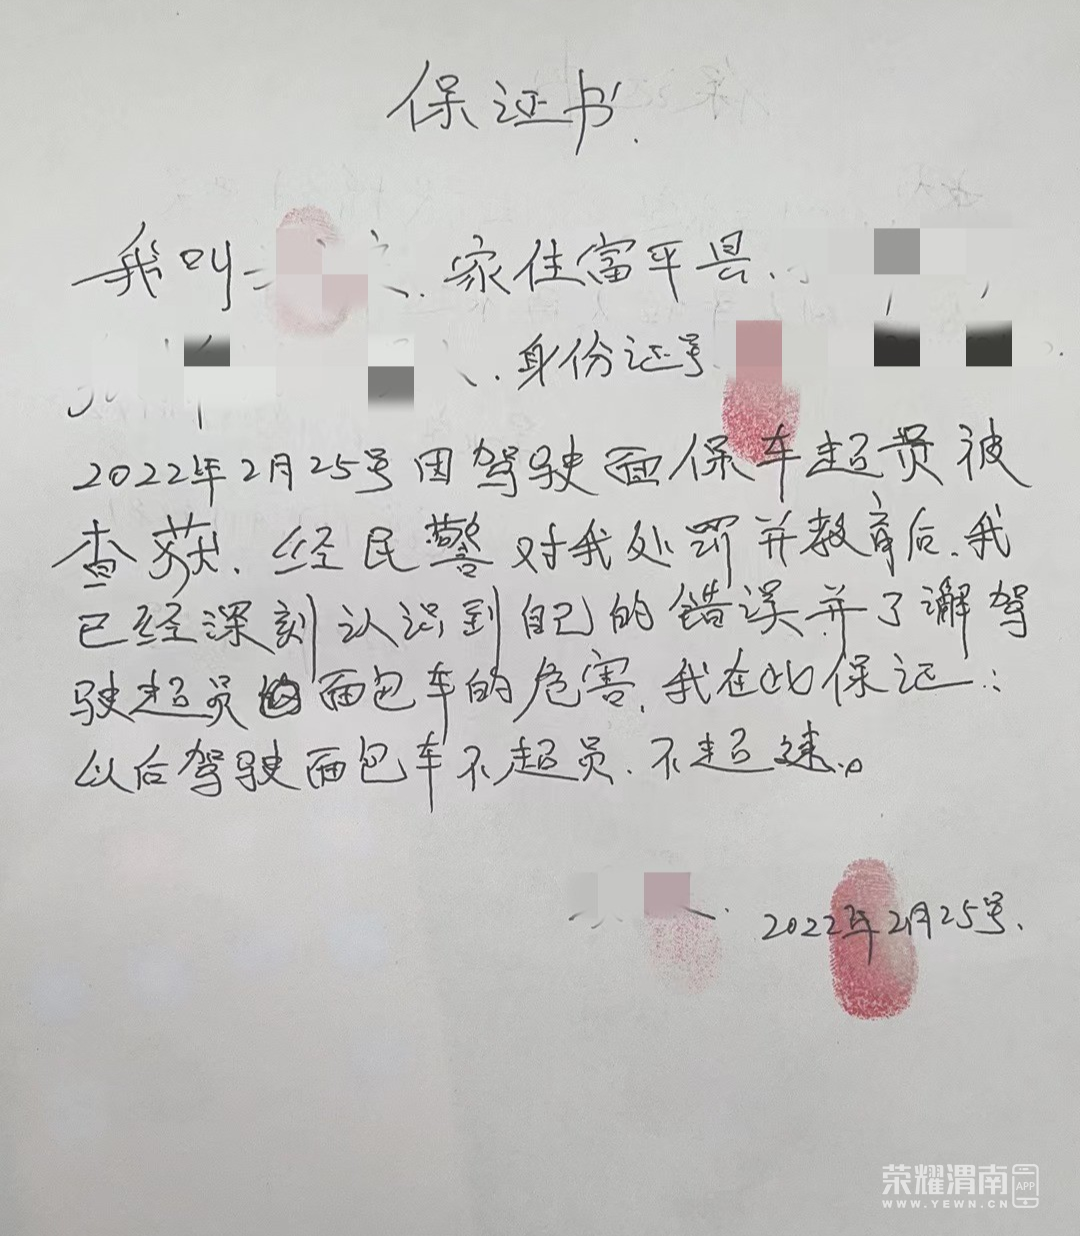 保证书.
我叫 . 家住富平县.
. 身份证号
2022年2月25号因驾驶面保车超员被
查获. 经民警对我处罚并教育后. 我
已经深刻认识到自己的错误并了解驾
驶超员的面包车的危害. 我在此保证:
以后驾驶面包车不超员. 不超速。
2022年2月25号.
荣耀渭南 APP
WWW.YEWN.CN